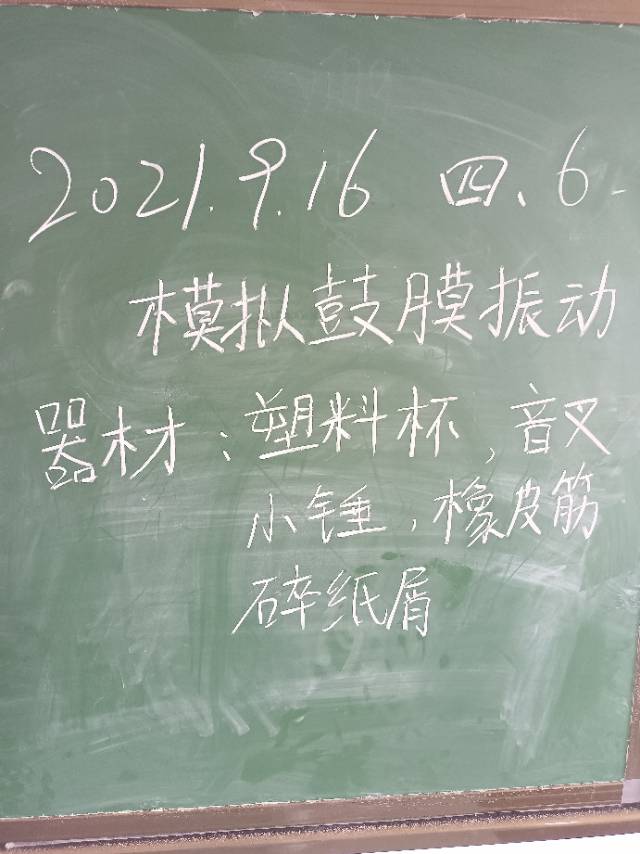 2021.9.16 四、6.
模拟鼓膜振动
器材：塑料杯，音叉
小锤，橡皮筋
碎纸屑